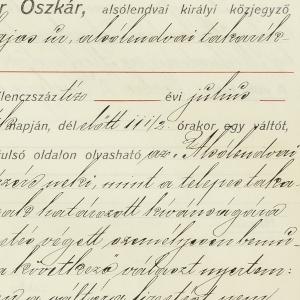 r, Oszkár, alsólendvai királyi közjegyző
ajas úr, alsólendvai takarék-
ilencszáz tíz évi július
napján, dél előtt 11 1/2 órakor egy váltót,
tulsó oldalon olyasható az „Alsólendvai
neki, mint a telepes taka-
határozott kivánságára
végett személyesen
a következő választ nyertem:
a váltóra fizetést nem